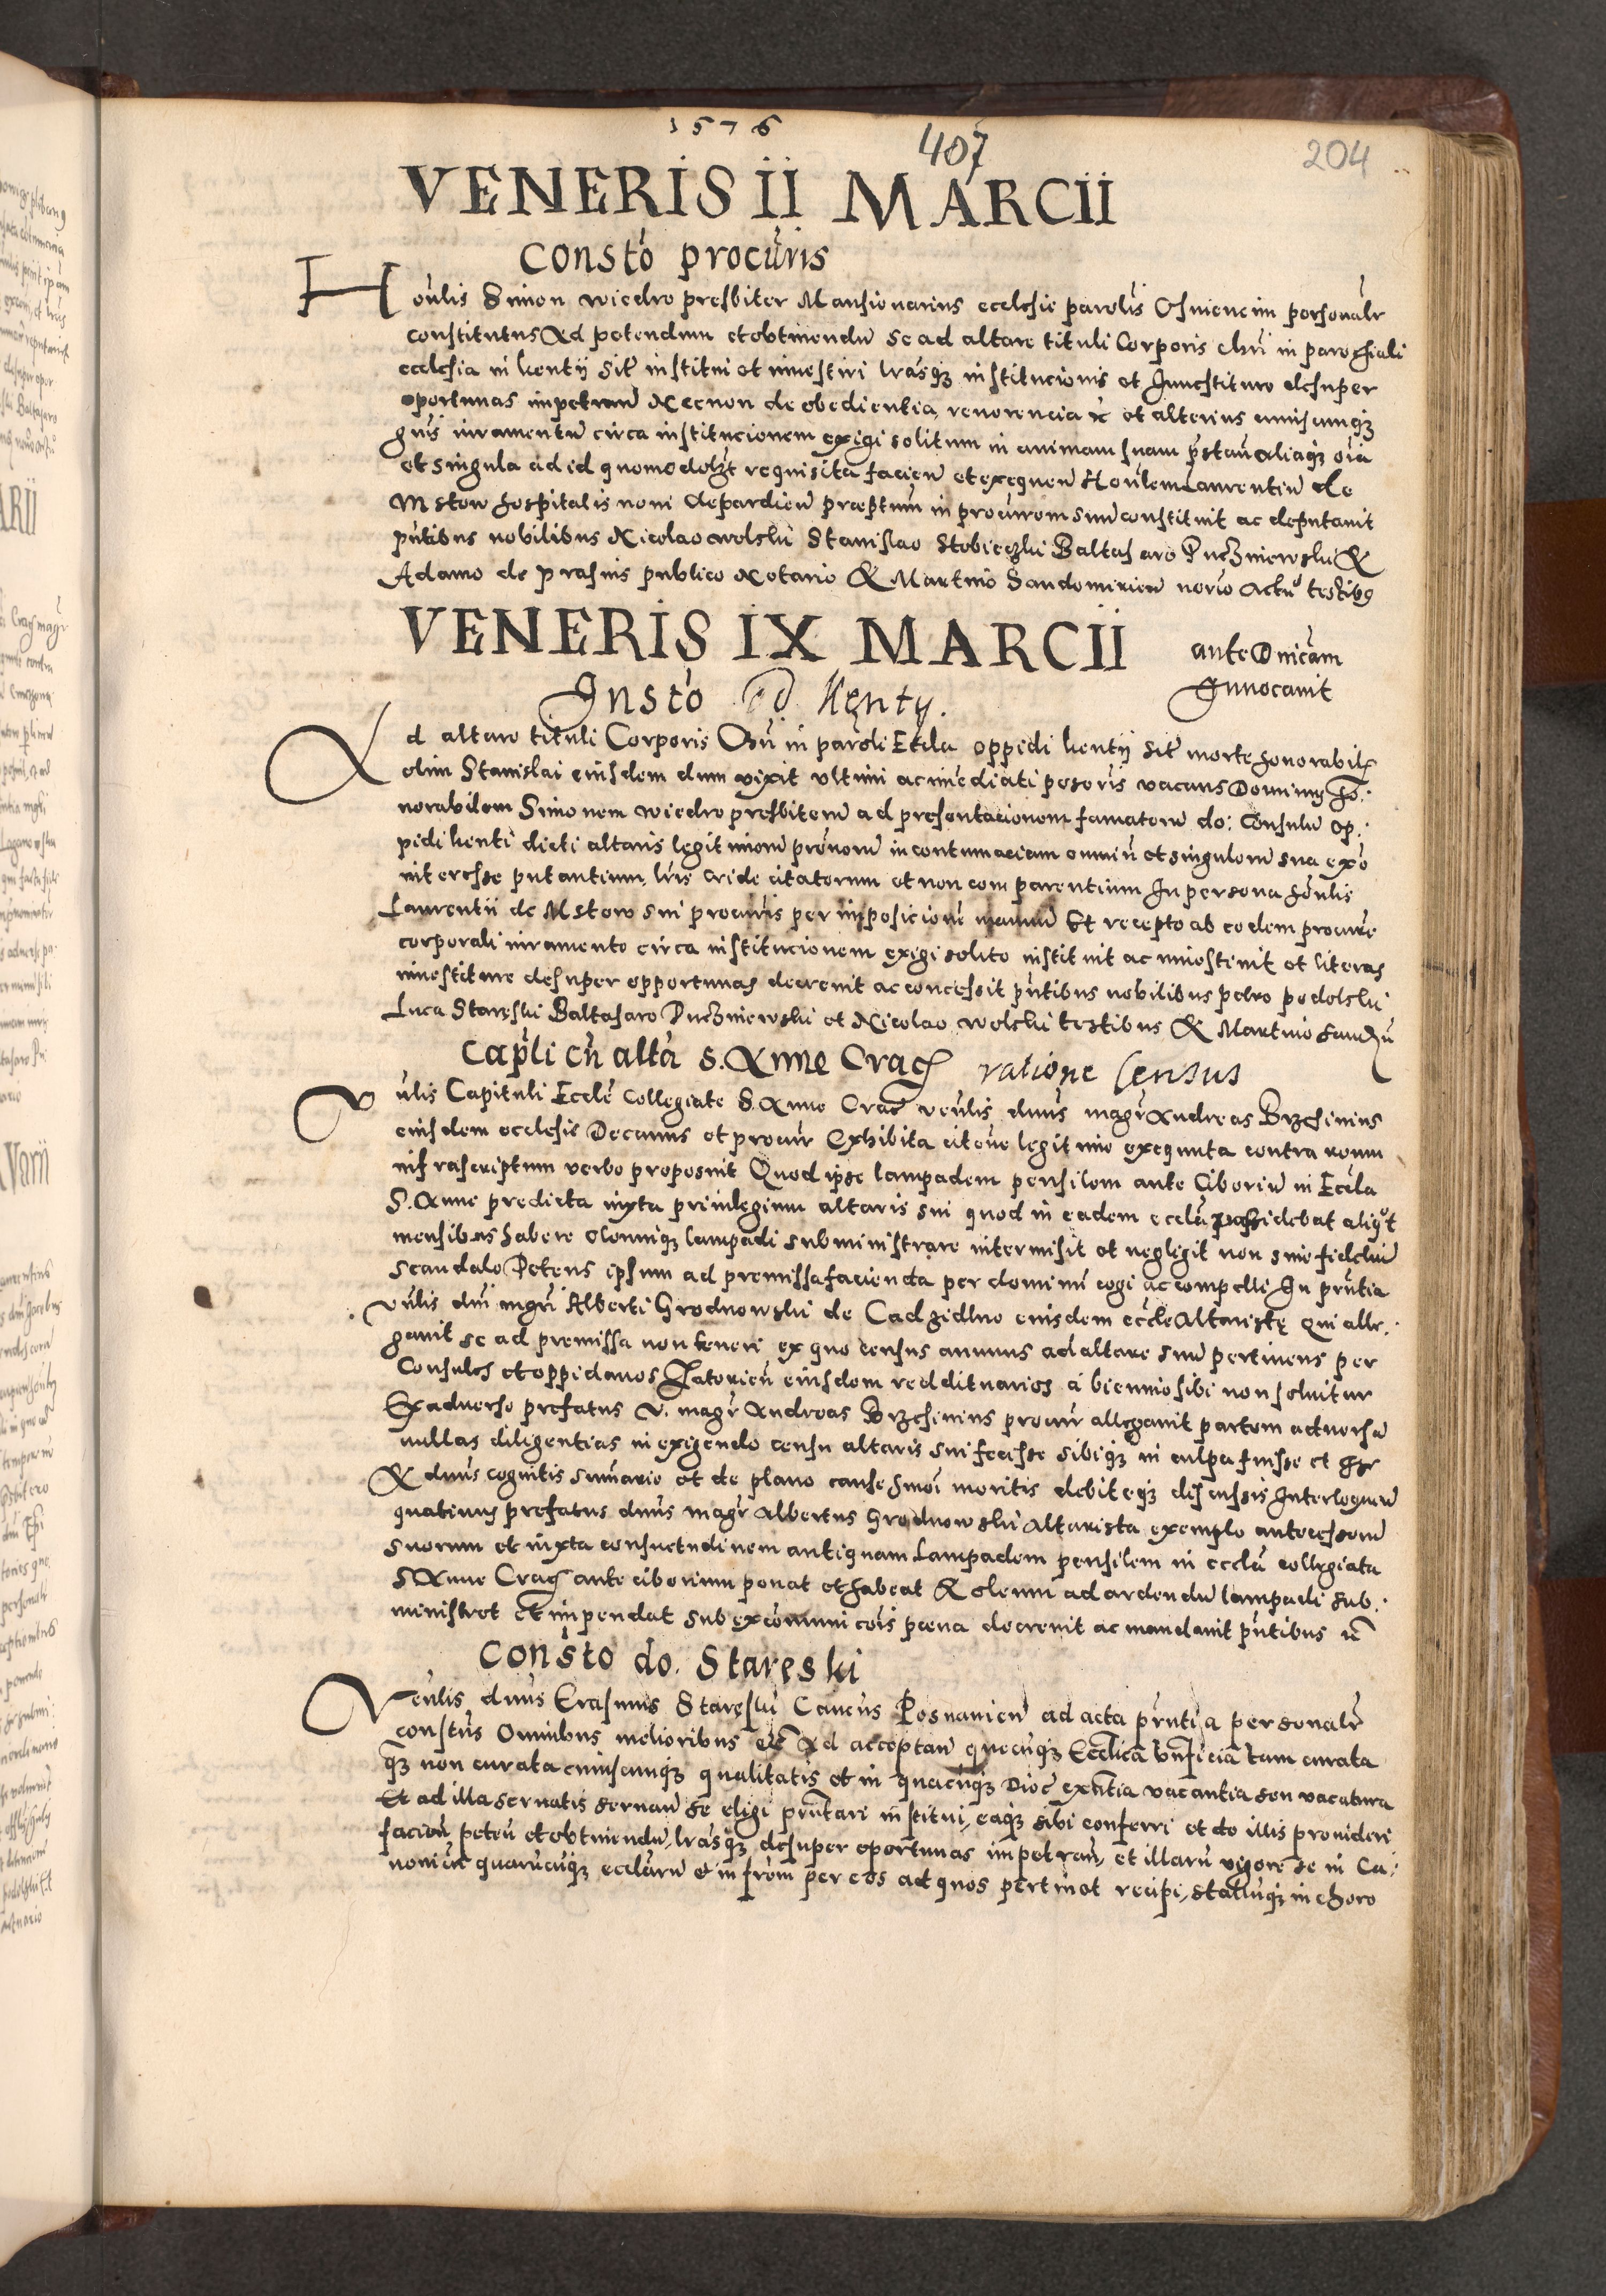 1576
407
204
VENERIS II MARCII
Consto procuris
Honlis Simon wiedro presbiter Mansionarius ecclesie parolis Osviencim personalr
constitutus Ad petendum et obtinendu se ad altare tituli Corporis chri in parochiali
ecclesia in kentij sit institui et investiri lrasq institucionis et Investiture desuper
oportunas impetrand Necnon de obedientia reverencia &c et alterius cuiuscunq
gnis iuramentu circa institucionem exigi solitum in animam suam pstan aliaq oia
et singula ad id quomodolt requisita facien et exequen Honlem Laurentiu de
Mstow hospitalis novi depardien praeptum in procurem suu constituit ac deputavit
pntibus nobilibus Nicolao wolski Stanislao Stobieczki Baltasaro Puczniewski &
Adamo de prasnis publico Notario & Martino Sandomirien norio Actu testibus
VENERIS IX MARCII ante Dnicam
Invocavit
Insto Ad Kenty.
Ad altare tituli Corporis Chri in paroli Eccla oppidi kentij sit morte honorabilis
olim Stanislai eiusdem dum vixit ultimi ac imediati posoris vacans Dominus ho:
norabilem Simonem wiedro presbiteru ad presentacionem famatoru do: Consulu op:
pidi kenti dicti altaris legitimoru pronoru in contumaciam omniu et singuloru sua exo
interesse putantium lris cride citatorum et non comparentium In persona honlis
Laurentii de Mstow sui procuris per impositione manuu Et recepto ab eodem procure
corporali iuramento circa institucionem exigi solito instituit ac investivit et literas
investiture desuper opportunas decrevit ac concessit pntibus nobilibus petro podolski
Luca Staręski Baltasaro Puczniewski et Nicolao wolski testibus & Martino Sand
Capli cu alta S. Anne Crac ratione Census
Vnlis Capituli Eccle Collegiate S. Anne Crac venlis dnus magr Andreas Brzchinius
eiusdem ecclesie Decanus et procur Exhibita citone legitimo exequuta contra
infrascriptum verbo proposuit Quod ipse lampadem pensilem ante Ciboriu in Eccla
S. Anne predicta iuxta privilegium altaris sui quod in eadem eccla possidebat aliqt
mensibus habere oleumq lampadi subministrare intermisit et negligit non sine fideliu
scandalo Petens ipsum ad premissa facienda per dominu cogi ac compelli In pntia
vnlis dni mgri Alberti Grodnowski de Cadzidlno eiusdem eccle Altaristę qui alle:
gavit se ad premissa non teneri ex quo census annuus ad altare suu pertinens per
Consules et oppidanos Zatorien eiusdem reddituarios a biennio sibi non solvitur
Exadverso prefatus v. magr Andreas Brzchinius procur allegavit partem adversa
nullas diligentias in exigendo censu altaris sui fecisse sibiq in culpa fuisse et esse
& dnus cognitis sumarie et de plano cause hmoi meritis debiteq discussis Interloquen
quatinus prefatus dnus magr Albertus Grodnowski Altarista exemplo antecessoru
suorum et iuxta consuetudinem antiquam Lampadem pensilem in eccla collegiata
S Anne Crac ante ciborium ponat et habeat & oleum ad ardendu lampadi sub:
ministret et impendat sub excommunicois poena decrevit ac mandavit pntibus &c
Consto do. Staręski
Venlis dnus Erasmus Staręski Cancus Posnanien ad acta prntia personalr
constus Omnibus melioribus &c Ad acceptan quecuq Ecclica bnficia tam curata
q non curata cuiuscunq qualitatis et in quacuq Dioc exntia vacantia seu vacatura
Et ad illa servatis servan se eligi prntari institui, eaq sibi conferri et de illis provideri
facien peten et obtinendu, lrasq desuper oportunas impetran, et illaru vigore se in Ca:
nonicu quarucuq ecclaru et in frem per eos ad quos pertinet recipi, stalluq in choro